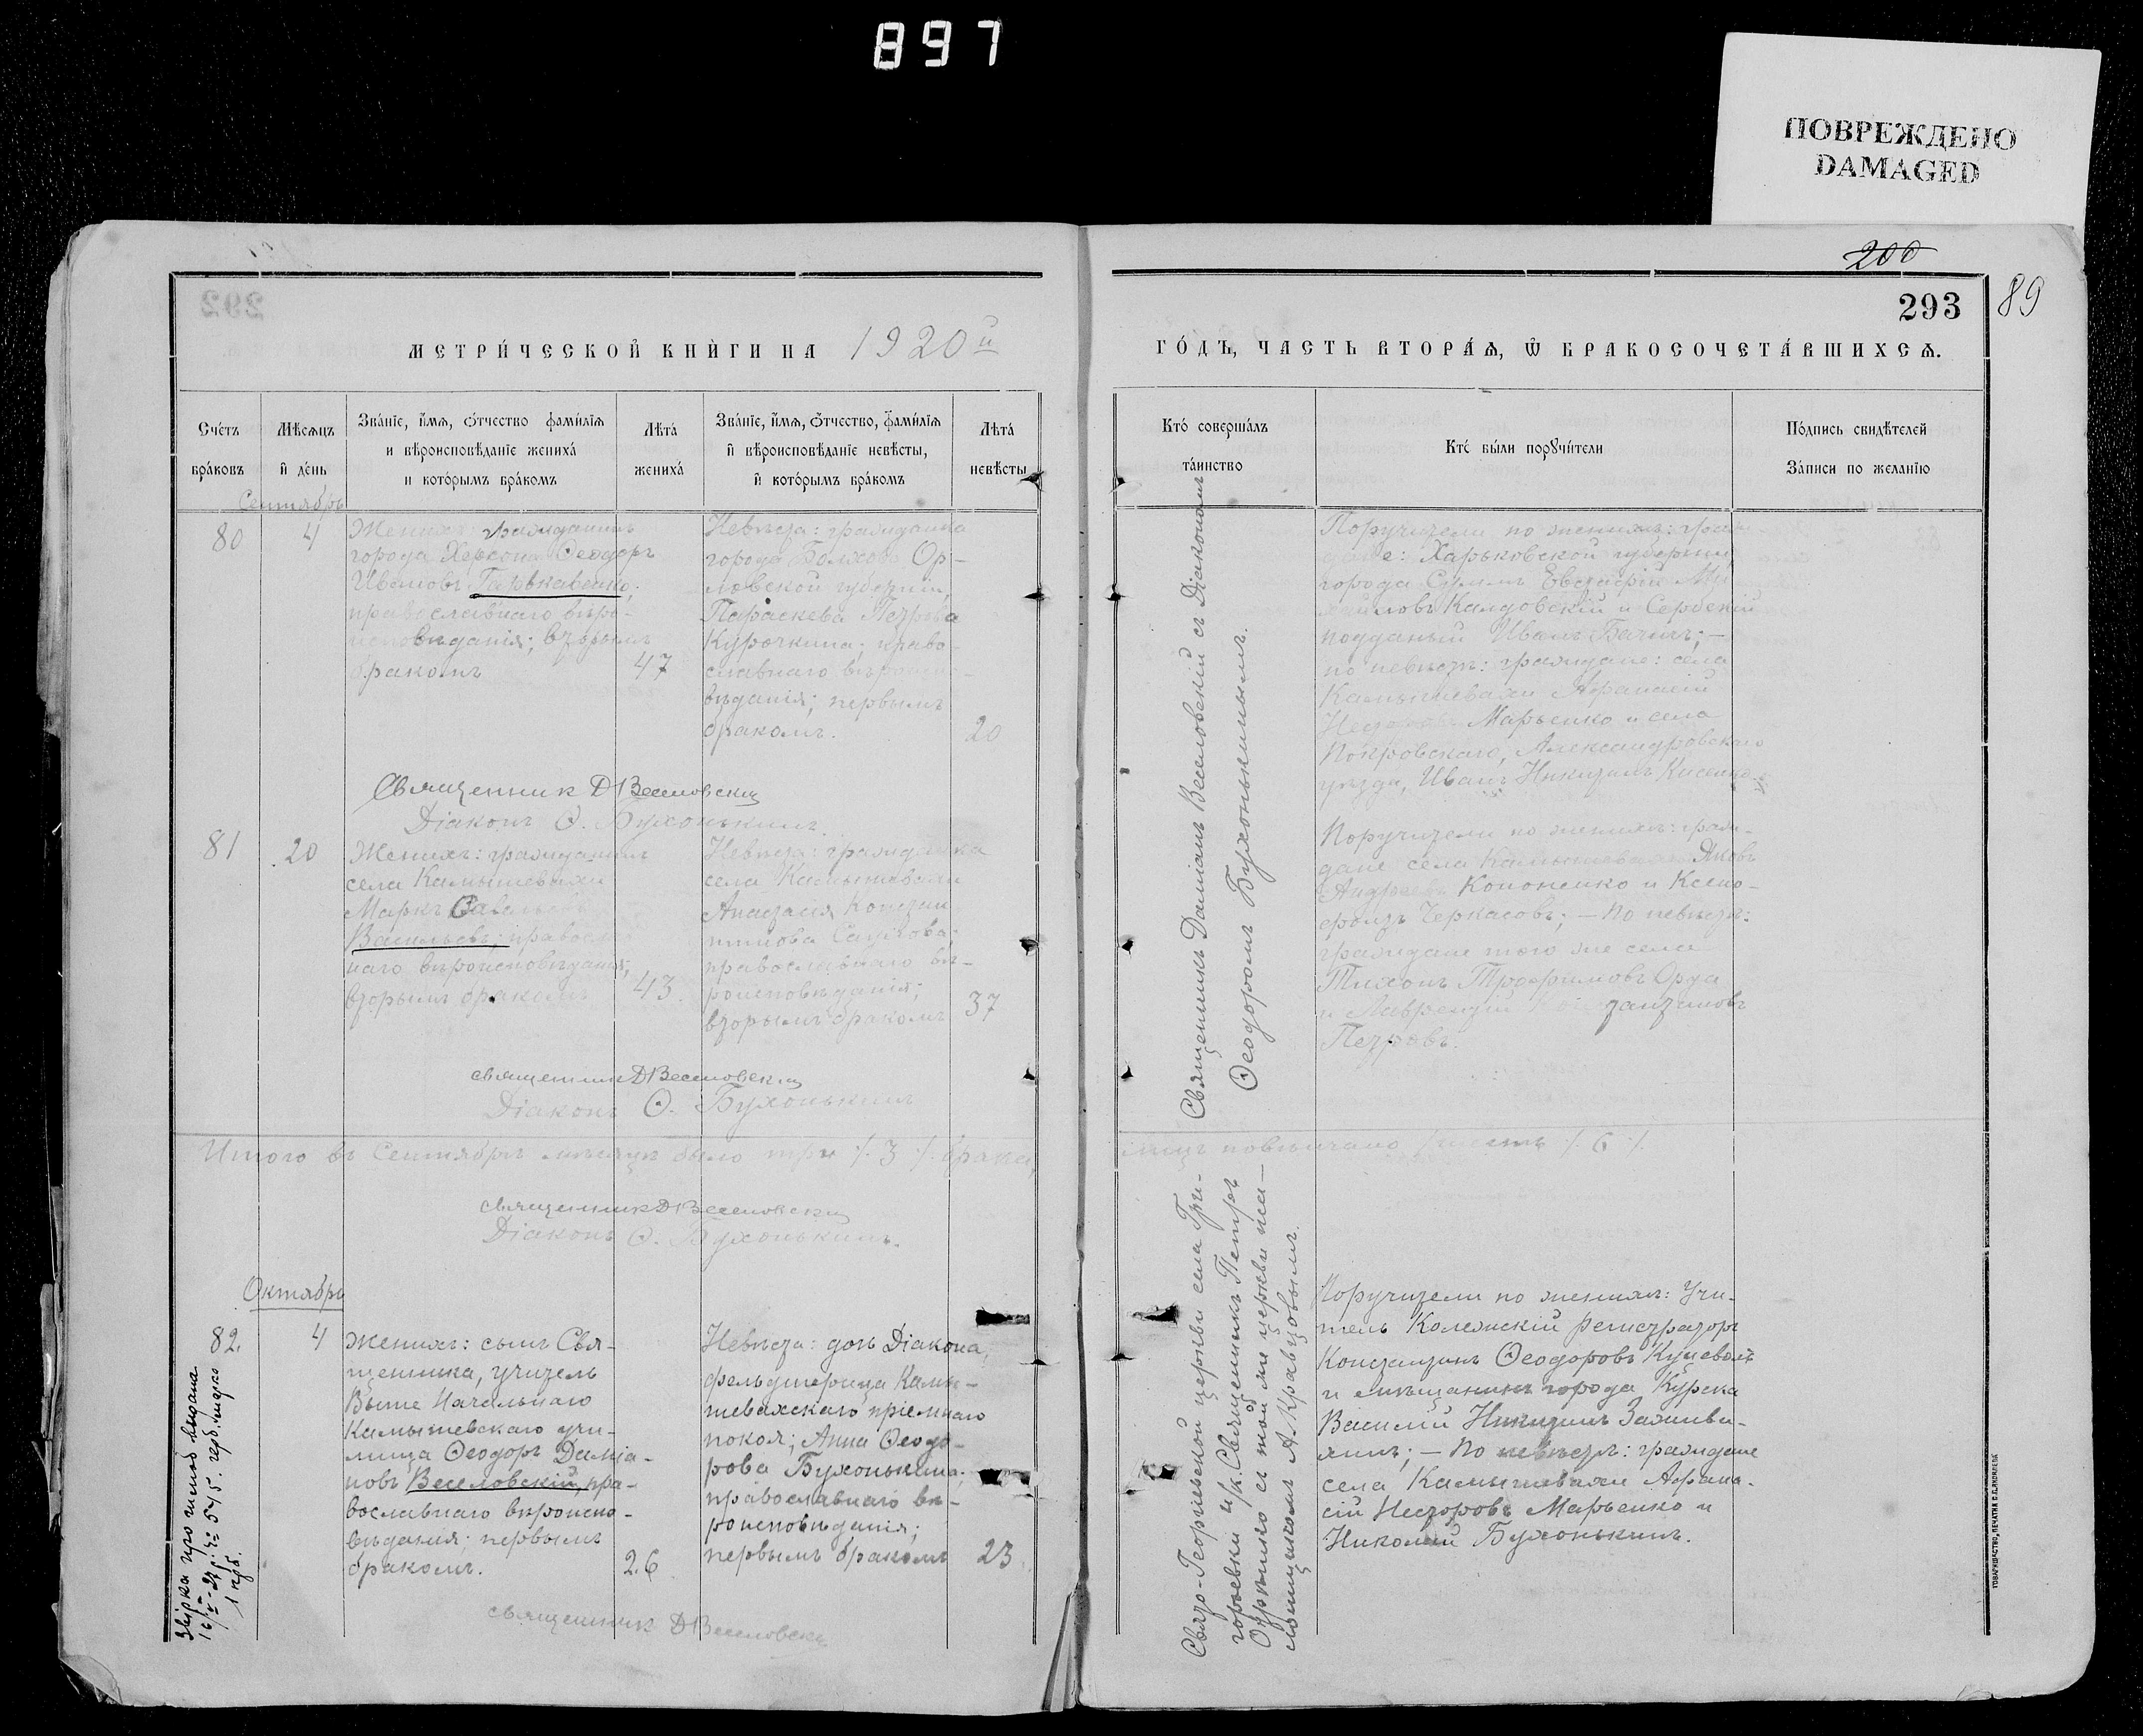 897
ПОВРЕЖДЕНО
DAMAGED
200
293
89
292
МЕТРИ́ЧЕСКОЙ КНИ́ГИ НА 1920й
ГО́ДЪ, ЧАСТЬ ВТОРА́Я, Ѡ БРАКОСОЧЕТА́ВШИХСЯ.
Сче́тъ
бра́ковъ
Мѣ́сяцъ
и де́нь
Зва́нїе, и́мя, ѻ́тчество фами́лїя
и вѣроисповѣ́данїе жениха́
и кото́рымъ бра́комъ
Лѣта́
жениха́
Зва́нїе, и́мя, ѻ́тчество, фами́лїя
и вѣроисповѣ́данїе невѣ́сты,
и кото́рымъ бра́комъ
Лѣта́
невѣ́сты
Кто́ соверша́лъ
та́инство
Кто́ бы́ли порꙋчи́тели
По́дпись свидѣ́телей
За́писи по жела́нїю
Сентябрь
80
4
Женихъ: гражданинъ
города Херсона Ѳеодоръ
Ивановъ Гарькавенко;
православнаго вѣро-
исповѣданія; вторымъ
бракомъ
47
Невѣста: гражданка
города Болхова Ор-
ловской губерніи,
Параскева Петрова
Курочкина; право-
славнаго вѣроиспо-
вѣданія; первымъ
бракомъ.
20
Поручители по женихѣ: граж-
дане: Харьковской губерніи,
города Сумъ Евстафій Ми-
хайловъ Калдовскій и Сербскій
подданый Иванъ Бачичъ; —
по невѣстѣ: граждане: села
Камышевахи Афанасій
Несторовъ Марьенко и села
Покровскаго, Александровскаго
уѣзда, Иванъ Никитинъ
Священникъ Д Веселовскій
Діаконъ Ѳ. Бухонькинъ.
81
20
Женихъ: гражданинъ
села Камышевахи
Маркъ Савельевъ
Васильевъ; православ
наго вѣроисповѣданія;
вторымъ бракомъ
43.
Невѣста: гражданка
села Камышевахи
Анастасія Констан
тинова
православнаго вѣ-
роисповѣданія;
вторымъ бракомъ
37
Поручители по женихѣ: граж-
дане села Камышевахи Яковъ
Андреевъ Кононенко и Ксено-
фонтъ Черкасовъ; — По невѣстѣ:
граждане того же села
Тихонъ Трофимовъ Орда
и Лаврентій Константиновъ
Петровъ.
Священникъ Даміанъ Веселовскій съ Діакономъ
Ѳеодоромъ Бухонькинымъ.
священникъ Д Веселовскій
Діаконъ Ѳ. Бухонькинъ
Итого въ Сентябрѣ мѣсяцѣ было три /. 3 /. брака,
лицъ повѣнчано шесть /. 6 /.
священникъ Д Веселовскій
Діаконъ Ѳ. Бухонькинъ.
Октябрь
82.
4
Женихъ: сынъ Свя-
щенника, учитель
Выше Начальнаго
Камышевскаго учи-
лища Ѳеодоръ Даміа-
новъ Веселовскій, пра-
вославнаго вѣроиспо-
вѣданія; первымъ
бракомъ.
26.
Невѣста: дочь Діакона,
фельдшерица Камы-
шевахскаго пріемнаго
покоя; Анна Ѳеодо-
рова Бухонькина;
православнаго вѣ-
роисповѣданія;
первымъ бракомъ
23.
Свято-Георгіевской церкви села Гри-
горьевки и/к. Священникъ Петръ
съ той же церкви пса-
ломщикомъ А. Кравцовымъ.
Поручители по женихѣ: Учи-
тель Колежскій регистраторъ
Константинъ Ѳеодоровъ
и мѣщанинъ города Курска
Василій Никитинъ
по невѣстѣ: граждане
села Камышевахи Афана-
сій Несторовъ Марьенко и
Николай Бухонькинъ.
священникъ Д Веселовскій
Звірка про шлюб видана
1 крб.